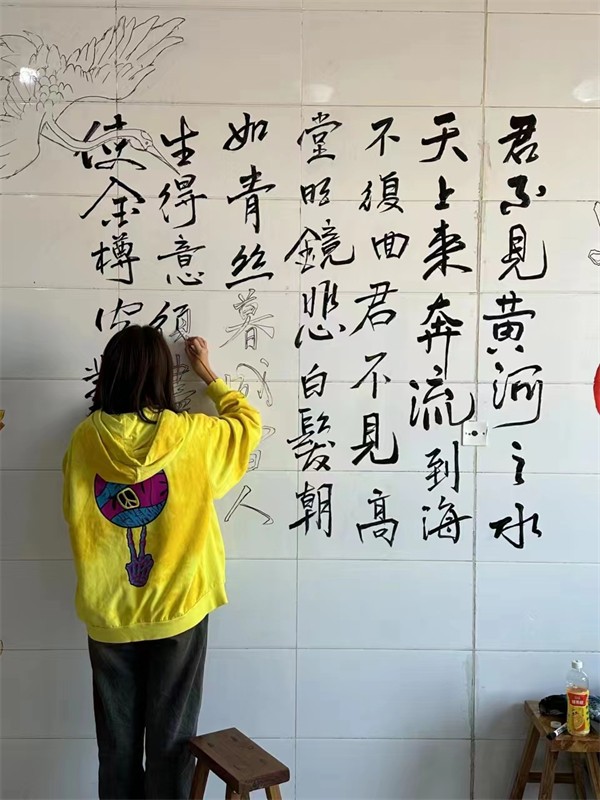 君不見黄河之水
天上来奔流到海
不復回君不見高
堂明鏡悲白髮朝
如青丝暮成雪人
生得意須
使金樽空